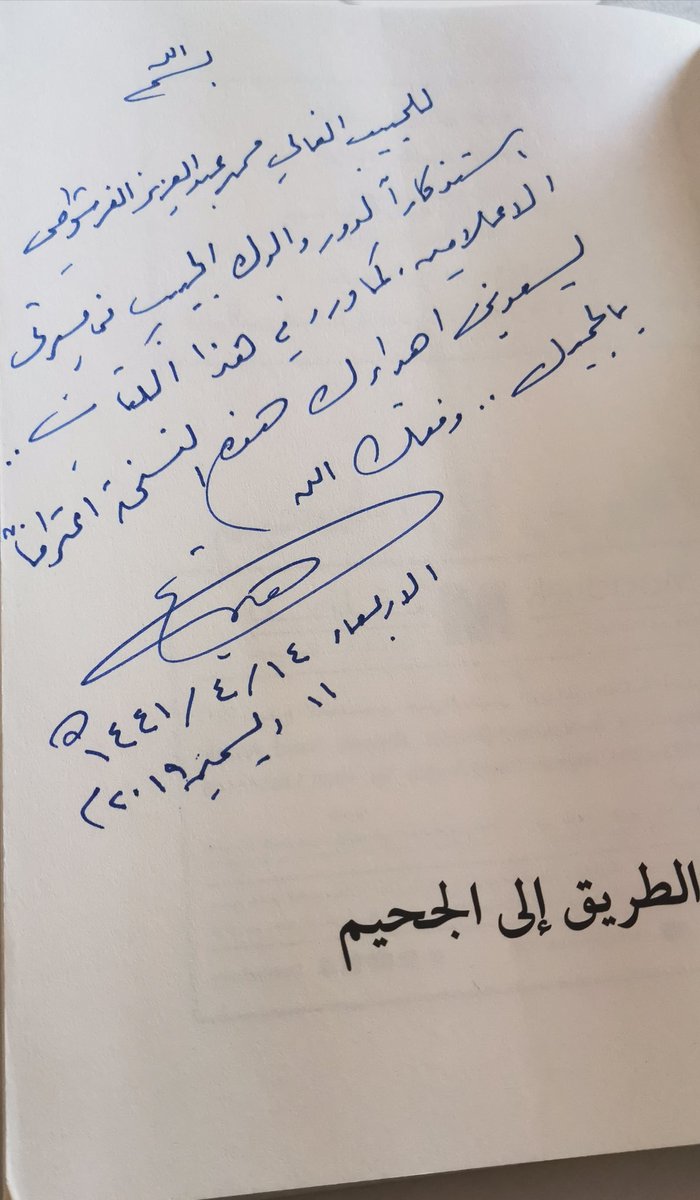 بسم الله
للحبيب الغالي محمد عبد العزيز القرشوطي
استذكاراً لدور والدك الحبيب في مسيرتي
الاعلامية، كما ورد في هذا الكتاب ..
يسعدني اهداءك هذه النسخة اعترافاً
بالجميل .. وفقك الله
الاربعاء ١٤/٤/١٤٤١هـ
١١ ديسمبر ٢٠١٩م
الطريق إلى الجحيم